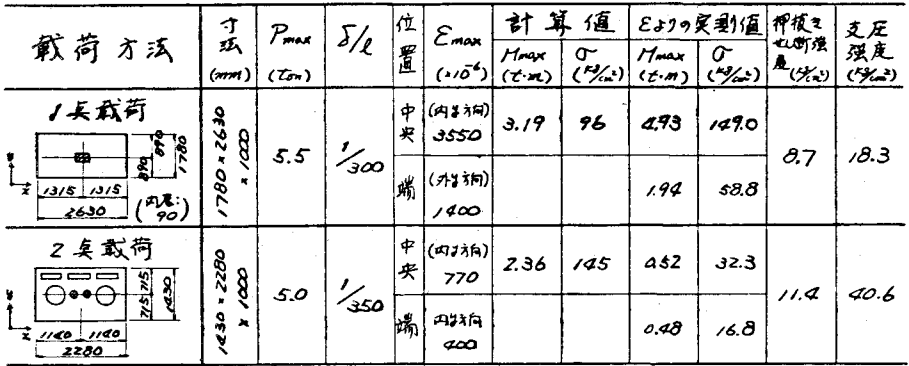 載荷方法 寸法 (mm) Pmax (Ton) δ/ℓ 位置 Emax (×10⁻⁶) 計算値 Mmax (t·m) σ (kg/cm²) Eよりの実測値 Mmax (t·m) σ (kg/cm²) 押抜きせん断強度 (kg/cm²) 支圧強度 (kg/cm²)
1点載荷
890 890 1780
1315 1315
2630
(内厚: 90)
1780×2630 ×1000
5.5
1/300
中央 (内y方向) 3550 3.19 96 4.93 149.0
端 (外y方向) 1400 1.94 58.8
8.7 18.3
2点載荷
715 715 1430
1140 1140
2280
1430×2280 ×1000
5.0
1/350
中央 (内y方向) 770 2.36 145 0.52 32.3
端 内y方向 400 0.48 16.8
11.4 40.6